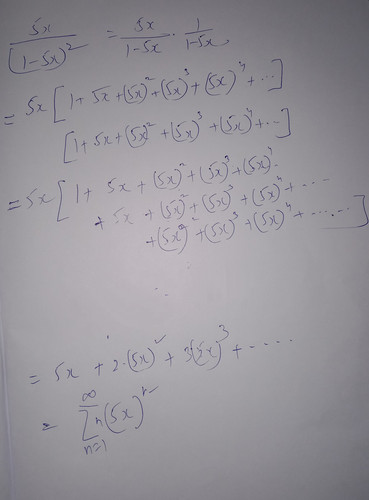 5x/(1-5x)² = 5x/(1-5x) · 1/(1-5x)
= 5x [1 + 5x + (5x)² + (5x)³ + (5x)⁴ + ...]
[1 + 5x + (5x)² + (5x)³ + (5x)⁴ + ...]
= 5x [1 + 5x + (5x)² + (5x)³ + (5x)⁴
+ 5x + (5x)² + (5x)³ + (5x)⁴ + ...
+ (5x)² + (5x)³ + (5x)⁴ + ......]
= 5x + 2·(5x)² + 3(5x)³ + ....
= ∑_{n=1}^{∞} n(5x)ⁿ